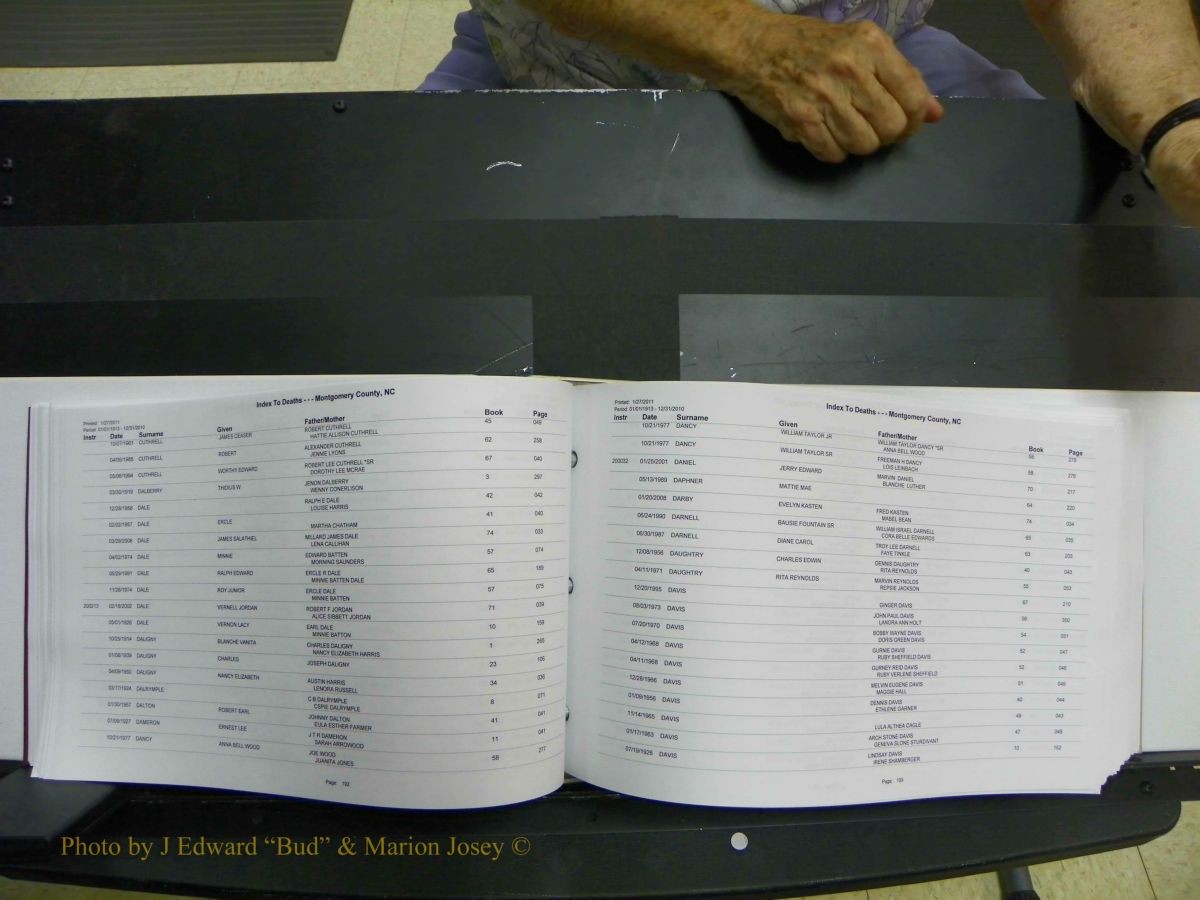 Index To Deaths - - - Montgomery County, NC
Printed: 1/27/2011
Period: 01/01/1913 - 12/31/2010
Instr Date Surname Given Father/Mother Book Page
10/07/1961 CUTHRELL JAMES CEASER ROBERT CUTHRELL 45 049
HATTIE ALLISON CUTHRELL
04/05/1985 CUTHRELL ROBERT ALEXANDER CUTHRELL 62 258
JENNIE LYONS
CUTHRELL WORTHY EDWARD ROBERT LEE CUTHRELL *SR 67 040
DOROTHY LEE MCRAE
03/30/1919 DALBERRY THIDIUS W JENON DALBERRY 3 297
WENNY CONERLISON
12/28/1958 DALE RALPH E DALE 42 042
LOUISE HARRIS
02/02/1957 DALE ERCLE 41 040
MARTHA CHATHAM
03/29/2006 DALE JAMES SALATHIEL MILLARD JAMES DALE 74 033
LENA CALLIHAN
04/02/1974 DALE MINNIE EDWARD BATTEN 57 074
MORNING SAUNDERS
05/29/1991 DALE RALPH EDWARD ERCLE R DALE 65 189
MINNIE BATTEN DALE
11/28/1974 DALE ROY JUNIOR ERCLE DALE 57 075
MINNIE BATTEN
200213 02/18/2002 DALE VERNELL JORDAN ROBERT F JORDAN 71 039
ALICE SIBBETT JORDAN
05/01/1926 DALE VERNON LACY EARL DALE 10 159
MINNIE BATTON
10/25/1914 DALIGNY BLANCHE VANITA CHARLES DALIGNY 1 265
NANCY ELIZABETH HARRIS
01/08/1939 DALIGNY CHARLES JOSEPH DALIGNY 23 106
04/09/1950 DALIGNY NANCY ELIZABETH AUSTIN HARRIS 34 036
LENORA RUSSELL
03/17/1924 DALRYMPLE C B DALRYMPLE 8 071
CSPIE DALRYMPLE
01/30/1957 DALTON ROBERT EARL JOHNNY DALTON 41 041
EULA ESTHER FARMER
07/09/1927 DAMERON ERNEST LEE J T R DAMERON 11 041
SARAH ARROWOOD
10/21/1977 DANCY ANNA BELL WOOD JOE WOOD 58 277
JUANITA JONES
Page: 192
Index To Deaths - - - Montgomery County, NC
Printed: 1/27/2011
Period: 01/01/1913 - 12/31/2010
Instr Date Surname Given Father/Mother Book Page
10/21/1977 DANCY WILLIAM TAYLOR JR WILLIAM TAYLOR DANCY *SR 58
ANNA BELL WOOD
10/21/1977 DANCY WILLIAM TAYLOR SR FREEMAN H DANCY 58
LOIS LEINBACH
200032 01/25/2001 DANIEL JERRY EDWARD MARVIN DANIEL 70 217
BLANCHE LUTHER
05/13/1989 DAPHNER MATTIE MAE 64 220
01/20/2008 DARBY EVELYN KASTEN FRED KASTEN 74 034
MABEL BEAN
06/24/1990 DARNELL BAUSIE FOUNTAIN SR WILLIAM ISRAEL DARNELL 65 035
CORA BELLE EDWARDS
06/30/1987 DARNELL DIANE CAROL TROY LEE DARNELL 63 203
FAYE TINKLE
12/08/1956 DAUGHTRY CHARLES EDWIN DENNIS DAUGHTRY 40 043
RITA REYNOLDS
04/11/1971 DAUGHTRY RITA REYNOLDS MARVIN REYNOLDS 55 053
REPSIE JACKSON
12/20/1995 DAVIS 67 210
GINGER DAVIS
08/03/1973 DAVIS JOHN PAUL DAVIS 56
LANDRA ANN HOLT
07/20/1970 DAVIS BOBBY WAYNE DAVIS 54 051
DORIS GREEN DAVIS
04/12/1968 DAVIS GURNIE DAVIS 52 047
RUBY SHEFFIELD DAVIS
04/11/1968 DAVIS GURNEY REID DAVIS 52 048
RUBY VERLENE SHEFFIELD
12/28/1966 DAVIS MELVIN EUGENE DAVIS 51 049
MAGGIE HALL
01/09/1956 DAVIS DENNIS DAVIS 40 044
ETHLENE GARNER
11/14/1965 DAVIS 49 043
LULA ALTHEA CAGLE
01/17/1963 DAVIS ARCH STONE DAVIS 47 046
GENEVA SLONE STURDIVANT
07/19/1926 DAVIS LINDSAY DAVIS 10 152
IRENE SHAMBERGER
Page: 193
Photo by J Edward “Bud” & Marion Josey ©